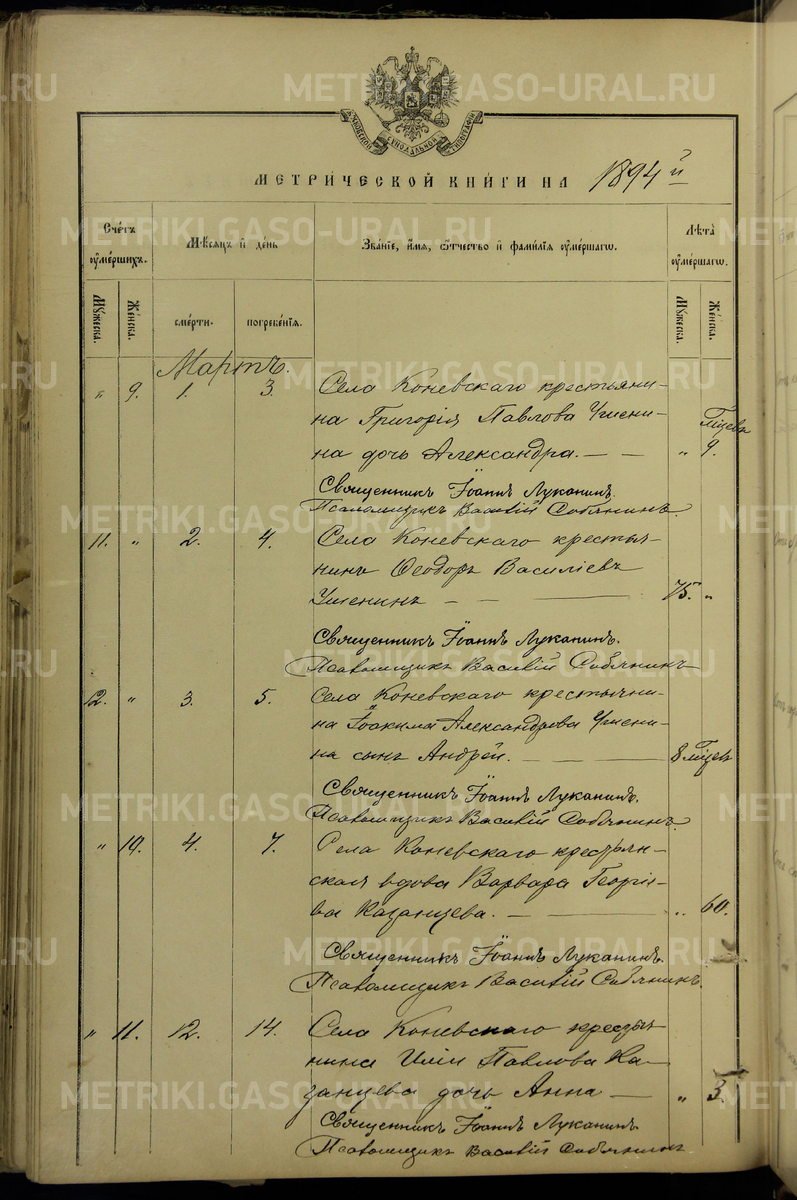 METRIKI.GASO-URAL.RU
МОСКОВСКОЙ СѴНОДАЛЬНОЙ ТИПОГРАФІИ
МЕТРИ́ЧЕСКОЙ КНИ́ГИ НА 1894 й
Сче́тъ ᲂу҆ме́ршихъ.
Мѣ́сяцъ и҆ де́нь
Зва́нїе, и҆́мя, ѻ҆́тчество и҆ фами́лїя ᲂу҆ме́ршагѡ.
Лѣ́та ᲂу҆ме́ршагѡ.
Мꙋ́жеска. Же́нска. сме́рти. погребе́нїя. Мꙋ́жеска. Же́нска.
Мартъ.
" 9. 1. 3. Села Коневскаго крестьяни-
на Григорія Павлова Ушени-
на дочь Александра. — — " 9.
Священникъ Іоаннъ Луканинъ.
Псаломщикъ Василій Собянинъ.
11. " 2. 4. Села Коневскаго крестья-
нинъ Ѳеодоръ Василіевъ
Ушенинъ — — 75. "
Священникъ Іоаннъ Луканинъ.
Псаломщикъ Василій Собянинъ
12. " 3. 5. Села Коневскаго крестьяни-
на Іоакима Александрова Ушени-
на сынъ Андрей. — — 8 мѣсяц
Священникъ Іоаннъ Луканинъ.
Псаломщикъ Василій Собянинъ.
" 10. 4. 7. Села Коневскаго крестьян-
ская вдова Варвара Георгіе-
ва Казанцева. — — " 60.
Священникъ Іоаннъ Луканинъ.
Псаломщикъ Василій Собянинъ.
" 11. 12. 14. Села Коневскаго крестья-
нина Иліи Павлова Ка-
занцева дочь Анна — " 3.
Священникъ Іоаннъ Луканинъ.
Псаломщикъ Василій Собянинъ